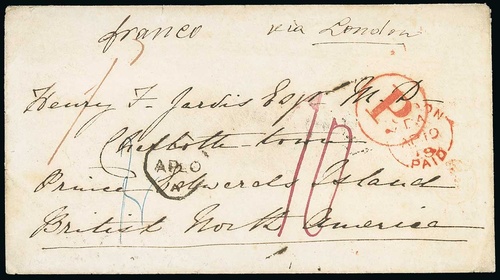 franco via London
Henry F. Jardis Esqr M.D
Charlotte-town
Prince Edwards Island
British North America
10
P
PAID